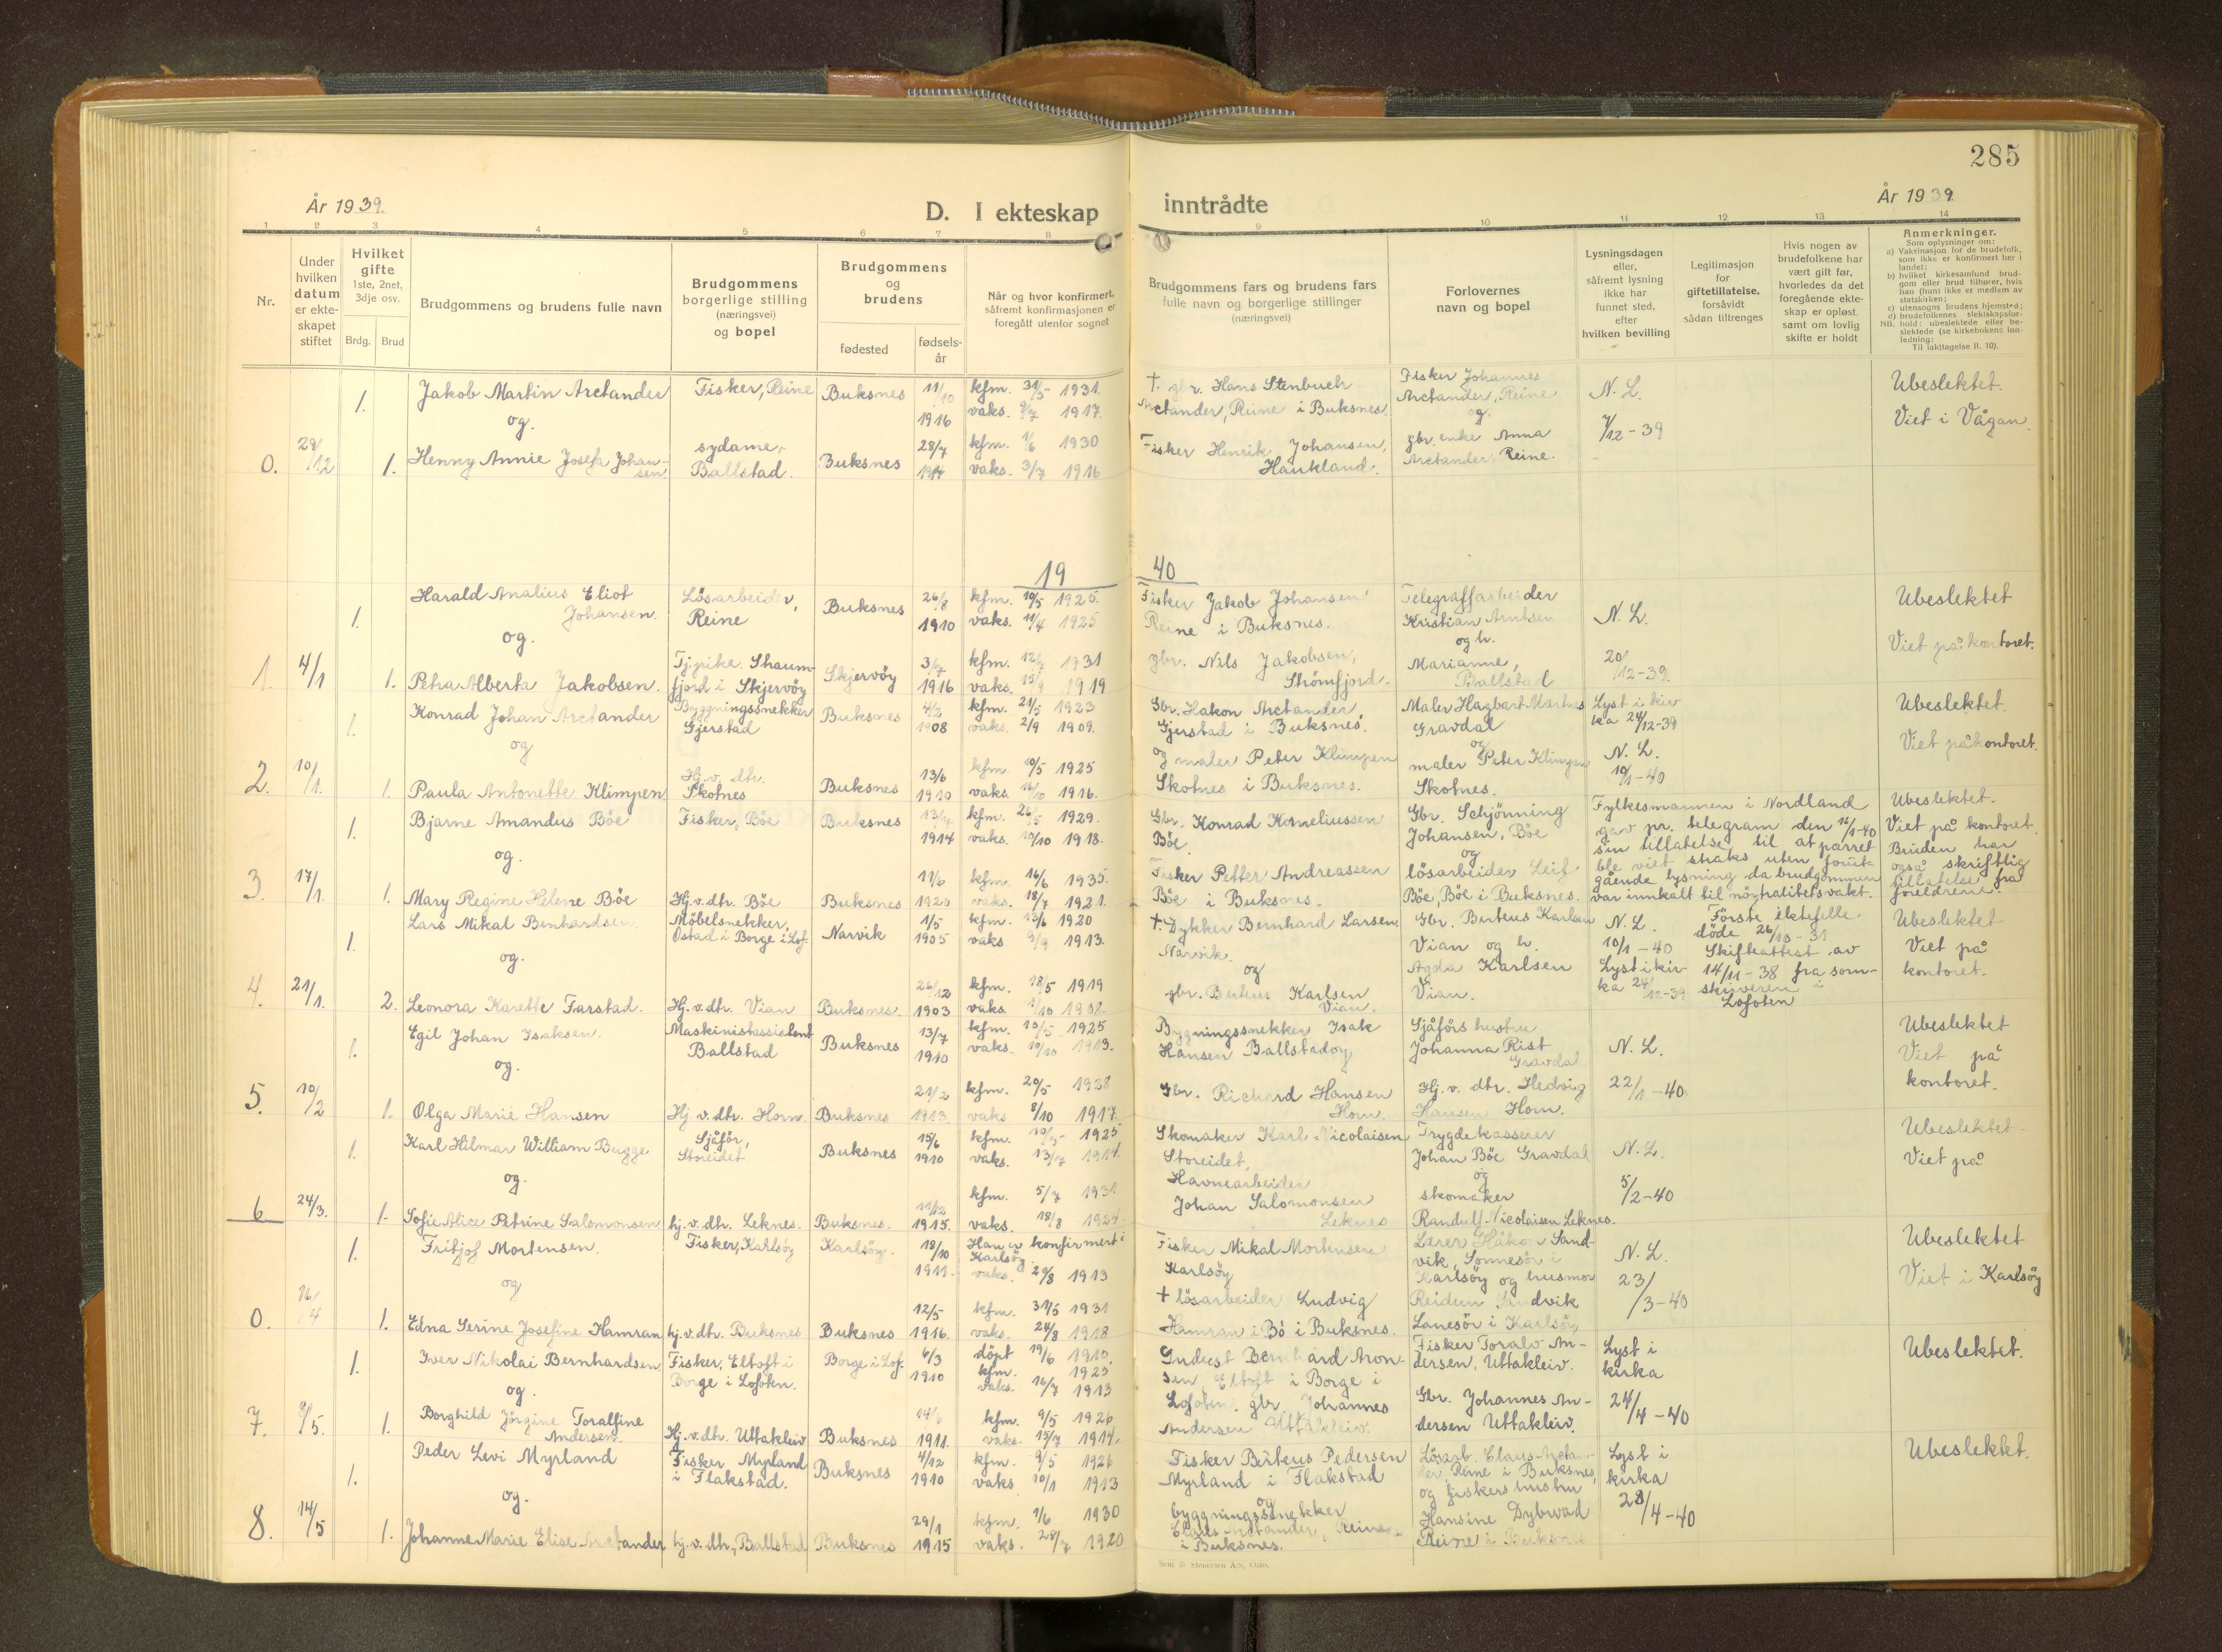 285
År 1939.
D. I ekteskap
inntrådte
År 1939
1 2 3 4 5 6 7 8 9 10 11 12 13 14
Nr.
Under
hvilken
datum
er ekte-
skapet
stiftet
Hvilket
gifte
1ste, 2net,
3dje osv.
Brdg. Brud
Brudgommens og brudens fulle navn
Brudgommens
borgerlige stilling
(næringsvei)
og bopel
Brudgommens
og
brudens
fødested
fødsels-
år
Når og hvor konfirmert,
såfremt konfirmasjonen er
foregått utenfor sognet
Brudgommens fars og brudens fars
fulle navn og borgerlige stillinger
(næringsvei)
Forlovernes
navn og bopel
Lysningsdagen
eller,
såfremt lysning
ikke har
funnet sted,
efter
hvilken bevilling
Legitimasjon
for
giftetillatelse,
forsåvidt
sådan tiltrenges
Hvis nogen av
brudefolkene har
vært gift før,
hvorledes da det
foregående ekte-
skap er opløst,
samt om lovlig
skifte er holdt
Anmerkninger.
Som oplysninger om:
a) Vaksinasjon for de brudefolk,
som ikke er konfirmert her i
landet;
b) hvilket kirkesamfund brud-
gom eller brud tilhører, hvis
han (hun) ikke er medlem av
statskirken;
c) utensogns brudens hjemsted;
d) brudefolkenes slektskapsfor-
hold: ubeslektede eller be-
slektede (se kirkebokens inn-
ledning:
NB. Til iakttagelse II, 10).
0. 29/12
1. Jakob Martin Arctander
og.
1. Henny Annie Josefa Johan-
sen.
Fisker, Reine
sydame,
Ballstad.
Buksnes
Buksnes
11/10
1916
28/7
kfm. 31/5 1931.
vaks. 9/7 1917.
kfm. 1/6 1930
vaks. 3/7 1916
† gbr. Hans Stenbuch
Arctander, Reine i Buksnes.
Fisker Henrik Johansen,
Haukland.
Fisker Johannes
Arctander, Reine
og.
gbr. enke Anna
Arctander, Reine.
N. L.
7/12-39
Ubeslektet.
Viet i Vågan.
19 40
1. 4/1
1. Harald Analius Eliot
Johansen.
og.
1. Petra Alberta Jakobsen.
Løsarbeider,
Reine
Tj.pike
fjord i Skjervøy
Buksnes
Skjervøy
26/8
1910
1916
kfm. 10/5 1925.
vaks. 11/4 1925
kfm. 1931
vaks. 1919
Fisker Jakob Johansen
Reine i Buksnes.
gbr. Nils Jakobsen,
Strømfjord.
Telegraffarbeider
Kristian Arntsen
og h.
Marianne,
Ballstad
N. L.
20/12-39.
Ubeslektet
Viet på kontoret.
2. 10/1.
1. Konrad Johan Arctander
og
1. Paula Antonette Klimpen
Byggningssnekker
Gjerstad
Hj.v. dtr.
Skotnes
Buksnes
Buksnes
1908
13/6
1910
kfm. 21/5 1923
vaks. 2/9 1909.
kfm. 10/5 1925
vaks. 1916.
Gbr. Hakon Arctander
Gjerstad i Buksnes.
og maler Peter Klimpen
Skotnes i Buksnes.
Maler Hagbart
Gravdal
og
maler Peter Klimpen
Skotnes.
Lyst i kir
ka 24/12-39
N. L.
10/1-40
Ubeslektet.
Viet på kontoret.
3. 17/1.
1. Bjarne Amandus Böe
og.
1. Mary Regine Helene Böe
Fisker, Böe
Hj.v.dtr. Böe
Buksnes
Buksnes
1914
11/6
1920
kfm. 26/5 1929.
vaks. 10/10 1918.
kfm. 16/6 1935.
vaks. 18/7 1921.
Gbr. Konrad Korneliussen
Böe.
Fisker Petter Andreassen
Böe i Buksnes.
Gbr. Schjönning
Johansen, Böe
og
lösarbeider Leif
Böe, Böe i Buksnes.
Fylkesmannen i Nordland
gav pr. telegram den 16/1-40
sin tillatelse til at parret
ble viet straks uten forut-
gående lysning da brudgommen
var innkalt til nöytralitetsvakt.
Ubeslektet.
Viet på kontoret.
Bruden har
også skriftlig
tillatelse fra
foreldrene.
4. 21/1.
1. Lars Mikal Benhardsen.
og.
2. Leonora Karette Farstad.
Möbelsnekker,
Ostad i Borge i Lof.
Hj.v.dtr. Vian
Narvik
Buksnes.
1/5
1905
26/12
1903
kfm. 13/6 1920
vaks 1913.
kfm. 18/5 1919
vaks. 1908.
† Dykker Bernhard Larsen
Narvik.
og
gbr. Berteus Karlsen
Vian.
Gbr. Berteus Karlsen
Vian og h.
Agda Karlsen
Vian.
N. L.
10/1-40
Lyst i kir-
ka 24/12-39
Förste ektefelle
döde 26/10-31
Skifteattest av
14/11-38 fra soren-
skriveren i
Lofoten
Ubeslektet
Viet på
kontoret.
5. 10/2
1. Egil Johan Isaksen.
og.
1. Olga Marie Hansen
Maskinistassistent
Ballstad
Hj.v.dtr. Horn.
Buksnes
Buksnes
13/7
1910
21/2
1913
kfm. 10/5 1925
vaks. 10/10 1913.
kfm. 20/5 1928
vaks 8/10 1917.
Bygningssnekker Isak
Hansen Ballstad og
Gbr. Richard Hansen
Horn.
Sjåförs hustru
Johanna Rist
Gravdal
Hj. v. dtr. Hedvig
Hansen Horn.
N. L.
22/1-40
Ubeslektet
Viet på
kontoret.
6 24/3.
1. Karl Hilmar William Bugge
og.
1. Sofie Alice Petrine Salomonsen
Sjåför,
Storeidet
hj.v.dtr. Leknes.
Buksnes
Buksnes.
15/6
1910
11/12
1915.
kfm. 1925
vaks. 13/7 1914.
kfm. 5/7 1931
vaks. 18/8
Skomaker Karl Nicolaisen
Storeidet.
Havnearbeider
Johan Salomonsen
Leknes
Trygdekasserer
Johan Böe Gravdal
og
skomaker
Randulf Nicolaisen Leknes.
N. L.
5/2-40
Ubeslektet
Viet på
0. 16/4
1. Fritjof Mortensen.
og
1. Edna Serine Josefine Hamran
Fisker, Karlsöy
hj.v.dtr. Buksnes
Karlsöy.
Buksnes
18/10
1911.
12/5
1916.
Han er konfirmert i
Karlsöy
vaks. 29/8 1913
kfm. 31/5 1931
vaks. 24/8 1918
Fisker Mikal Mortensen
Karlsöy
† lösarbeider Ludvig
Hamran i Bö i Buksnes.
Lærer Håkon Sand-
vik,
Karlsöy og husmor
Reidun Sandvik
i Karlsöy
N. L.
23/3-40
Ubeslektet
Viet i Karlsöy
7. 8/5.
1. Iver Nikolai Bernhardsen
og.
1. Borghild Jörgine Toralfine
Andersen.
Fisker, Eltoft i
Borge i Lofoten.
Hj.v.dtr. Uttakleiv
Borge i Lof.
Buksnes
6/3
1910
1911.
döpt 19/6 1910.
kfm. 1925
vaks. 16/7 1913
kfm. 9/5 1926
vaks. 15/7 1914.
Bernhard Aron-
sen, Eltoft i Borge i
Lofoten. gbr Johannes
Andersen Uttakleiv.
Fisker Toralv An-
dersen, Uttakleiv.
Gbr. Johannes An-
dersen Uttakleiv.
Lyst i
kirka
24/4-40
Ubeslektet.
8. 14/5
1. Peder Levi Myrland
og.
1. Johanne Marie Elise Arctander
Fisker Myrland
i Flakstad.
hj.v.dtr., Ballstad
Buksnes
Buksnes
4/12
1910
29/1
1915
kfm. 9/5 1926
vaks 10/1 1913
kfm. 1/6 1930
vaks. 28/7 1920
Fisker Birteus Pedersen
Myrland i Flakstad
og
byggningssnekker
Claus Arctander, Reine
i Buksnes.
Lösarb. Claus Arctan-
der, Reine i Buksnes,
og fiskers hustru
Hansine Dybwad
Reine i Buksnes
Lyst i
kirka
28/4-40
Ubeslektet.
Sem & Stenersen A/S, Oslo.